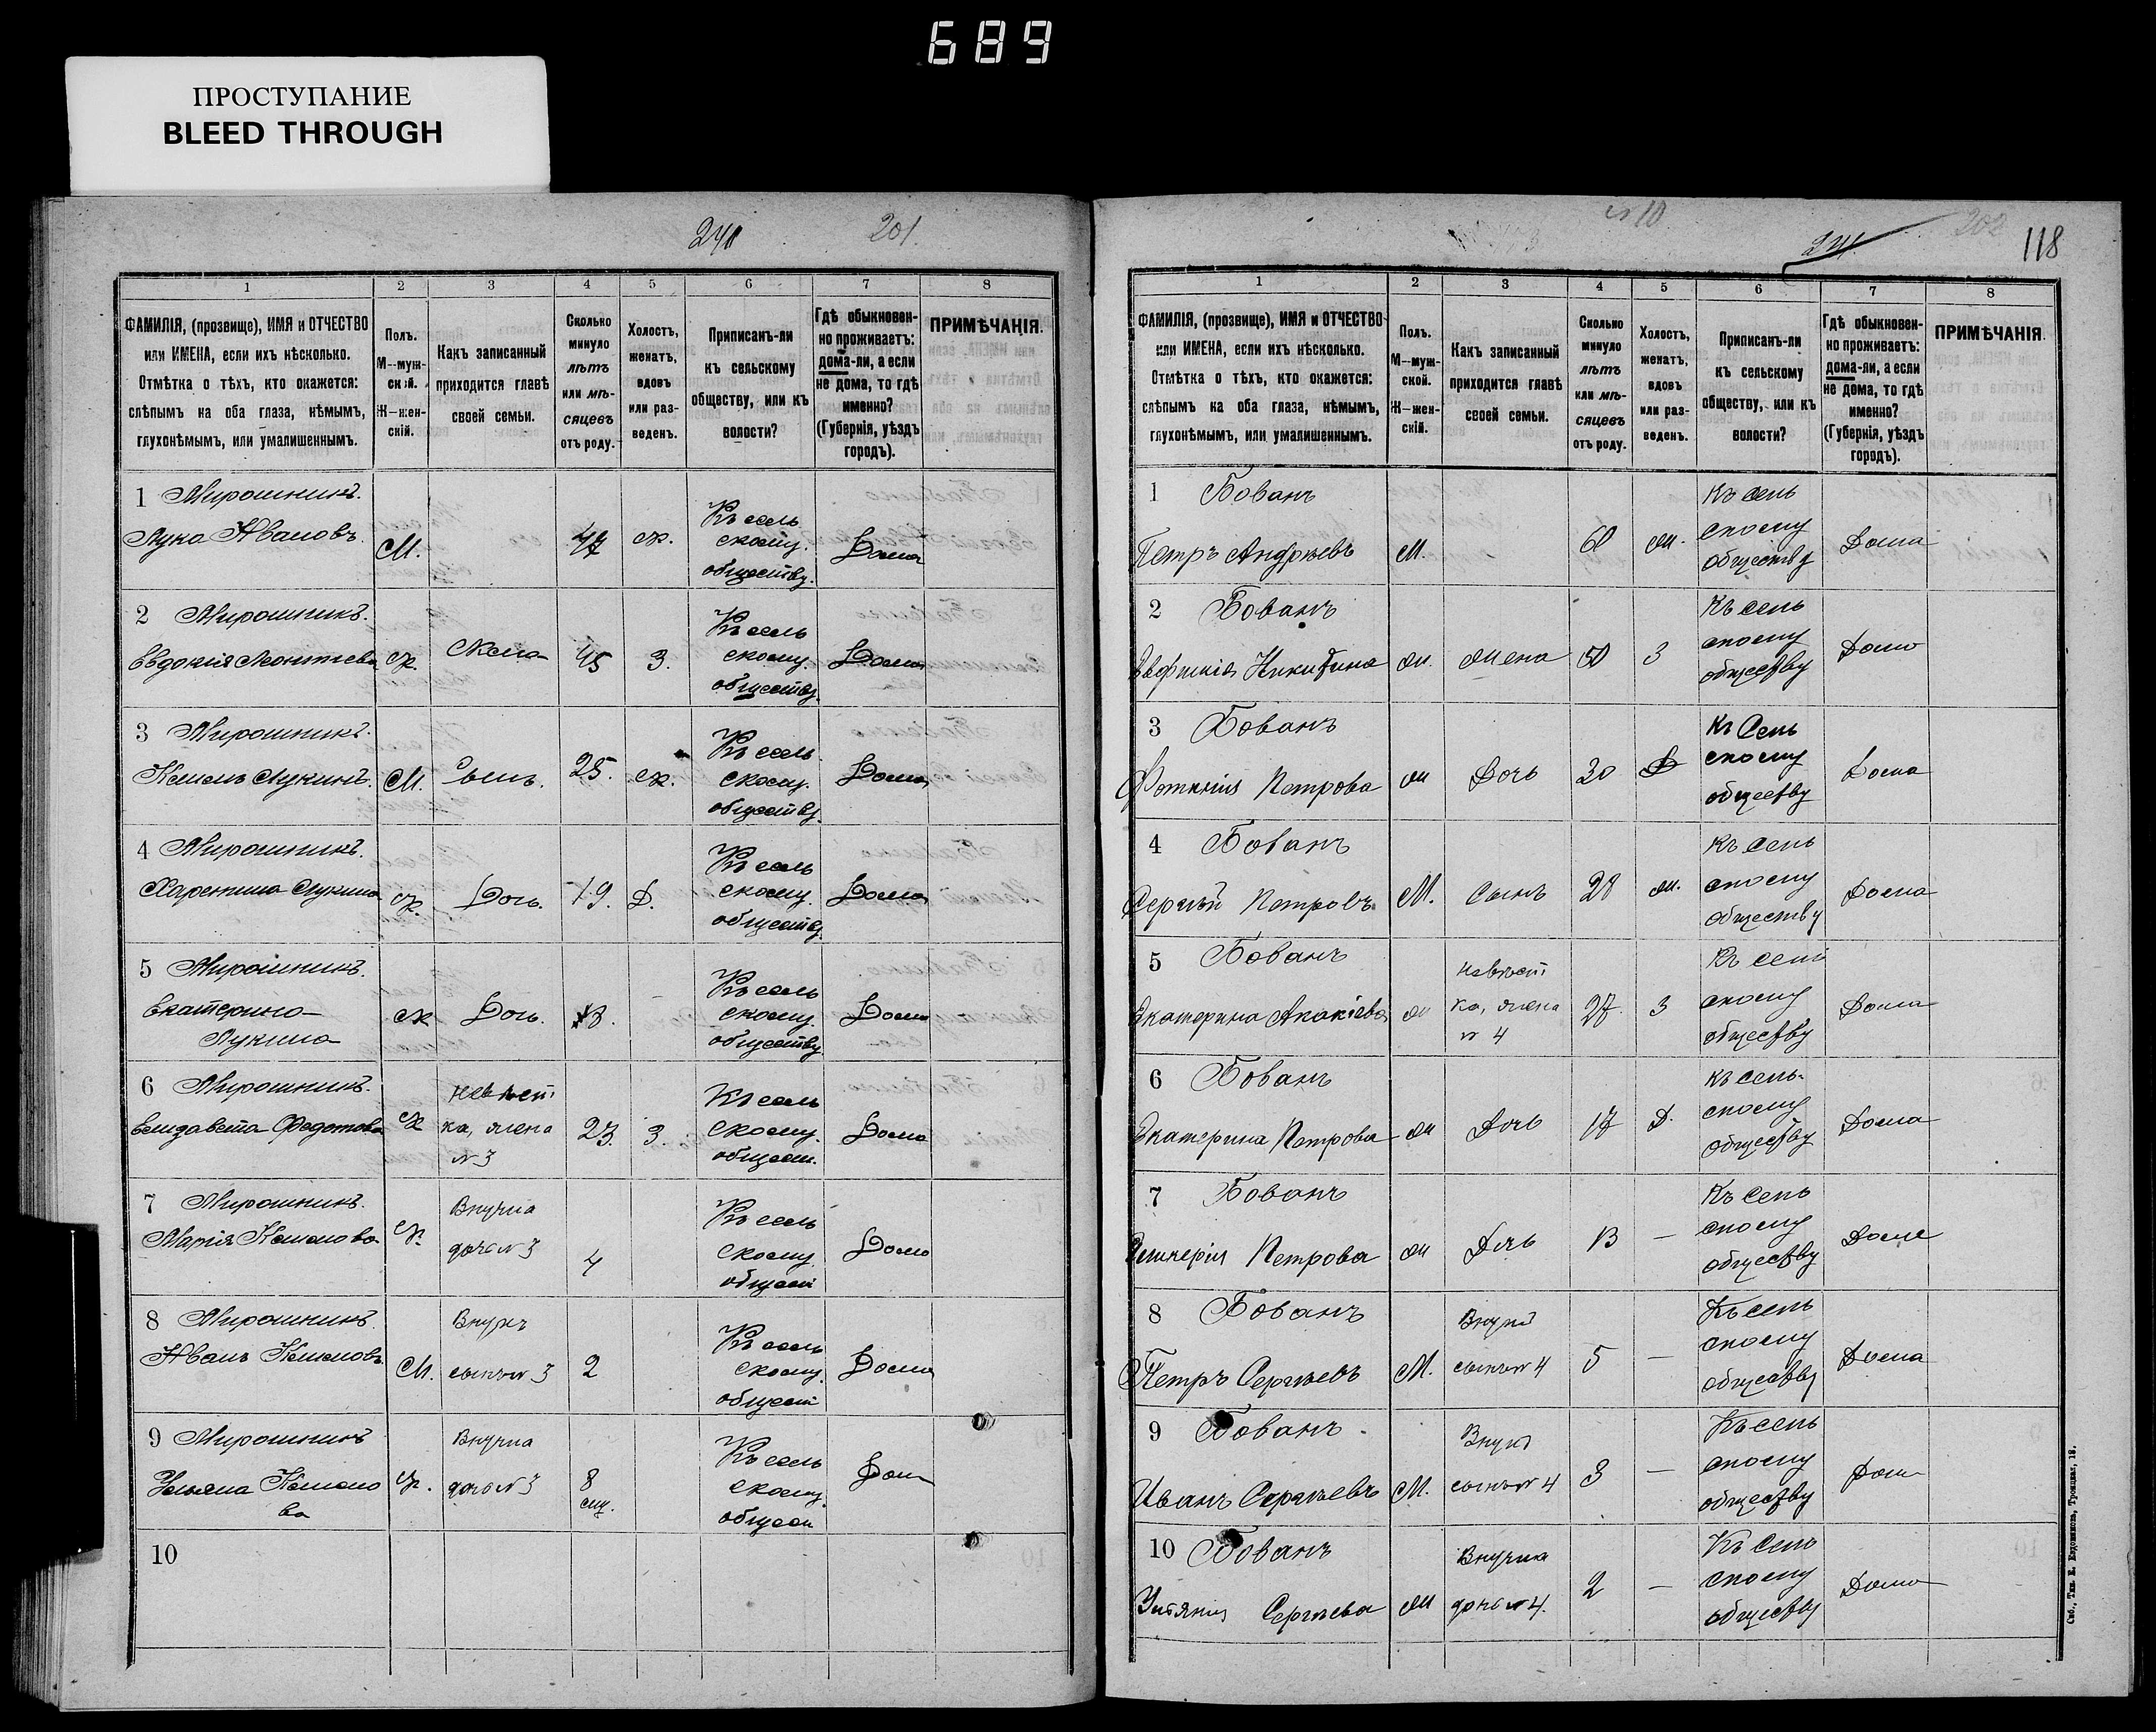 689
ПРОСТУПАНИЕ
BLEED THROUGH
240
201.
1 2 3 4 5 6 7 8
ФАМИЛІЯ, (прозвище), ИМЯ и ОТЧЕСТВО
или ИМЕНА, если ихъ нѣсколько.
Отмѣтка о тѣхъ, кто окажется:
слѣпымъ на оба глаза, нѣмымъ,
глухонѣмымъ, или умалишеннымъ.
Полъ.
М—муж-
ской.
Ж—жен-
скій.
Какъ записанный
приходится главѣ
своей семьи.
Сколько
минуло
лѣтъ
или мѣ-
сяцевъ
отъ роду.
Холостъ,
женатъ,
вдовъ
или раз-
веденъ.
Приписанъ-ли
къ сельскому
обществу, или къ
волости?
Гдѣ обыкновен-
но проживаетъ:
дома-ли, а если
не дома, то гдѣ
именно?
(Губернія, уѣздъ
городъ).
ПРИМѢЧАНІЯ.
1 Мирошникъ.
Лука Ивановъ.
М.
47
ж.
Къ сель
скому.
обществу.
Дома
2 Мирошникъ.
Евдокія Леонтьева
ж.
Жена
45
3.
Къ сель
скому.
обществу.
Дома
3 Мирошникъ.
Лукинъ.
М.
Сынъ.
25.
ж.
Къ сель
скому.
обществу.
Дома
4 Мирошникъ.
Харитина Лукина
ж.
Дочь.
19.
Д.
Къ сель
скому.
обществу.
Дома
5 Мирошникъ.
Екатерина
Лукина
ж
Дочь.
13.
Къ сель
скому.
обществу
Дома
6 Мирошникъ.
Елизавета Федотова
ж
Невѣст
ка, жена
№ 3
23.
3.
Къ сель
скому.
общест.
Дома
7 Мирошникъ.
Марія
ж.
Внучка
дочь № 3
4
Къ сель
скому.
общест
Дома
8 Мирошникъ
Иванъ
М.
Внукъ
сынъ № 3
2
Къ сель
скому.
общест
Дома
9 Мирошникъ
Ульяна
ва
ж.
Внучка
дочь № 3
8
мц.
Къ сель
скому.
общест
Дом
10
№ 10
241.
202
118
1 2 3 4 5 6 7 8
ФАМИЛІЯ, (прозвище), ИМЯ и ОТЧЕСТВО
или ИМЕНА, если ихъ нѣсколько.
Отмѣтка о тѣхъ, кто окажется:
слѣпымъ на оба глаза, нѣмымъ,
глухонѣмымъ, или умалишеннымъ.
Полъ.
М—муж-
ской.
Ж—жен-
скій.
Какъ записанный
приходится главѣ
своей семьи.
Сколько
минуло
лѣтъ
или мѣ-
сяцевъ
отъ роду.
Холостъ,
женатъ,
вдовъ
или раз-
веденъ.
Приписанъ-ли
къ сельскому
обществу, или къ
волости?
Гдѣ обыкновен-
но проживаетъ:
дома-ли, а если
не дома, то гдѣ
именно?
(Губернія, уѣздъ
городъ).
ПРИМѢЧАНІЯ.
1 Бованъ
Петръ Андрѣевъ
М.
60
ж.
Къ сель
скому
обществу
Дома
2 Бованъ
Никитина
ж.
жена
50
3
Къ сель
скому
обществу
Дома
3 Бованъ
Фотинія Петрова
ж
Дочь
30
Д
Къ сель
скому
обществу
Дома
4 Бованъ
Сергѣй Петровъ
М.
Сынъ
28
ж.
Къ сель
скому
обществу
Дома
5 Бованъ
Екатерина Акакіева
ж
Невѣст
ка, жена
№ 4
27.
3
Къ сель
скому
обществу
Дома
6 Бованъ
Екатерина Петрова
ж
Дочь
17
Д.
Къ сель-
скому
обществу
Дома
7 Бованъ
Петрова
ж
Дочь
13
—
Къ сель
скому
обществу
Дома
8 Бованъ
Петръ Сергѣевъ
М.
Внукъ
сынъ № 4
5
—
Къ сель
скому
обществу
Дома
9 Бованъ
Иванъ Сергѣевъ
М.
Внукъ
сынъ № 4
3
—
Къ сель
скому
обществу
Дом
10 Бованъ
Сергѣева
ж
Внучка
дочь № 4.
2
—
Къ сель
скому
обществу
Дома
Спб., Тип. Е. Евдокимова, Троицкая, 18.